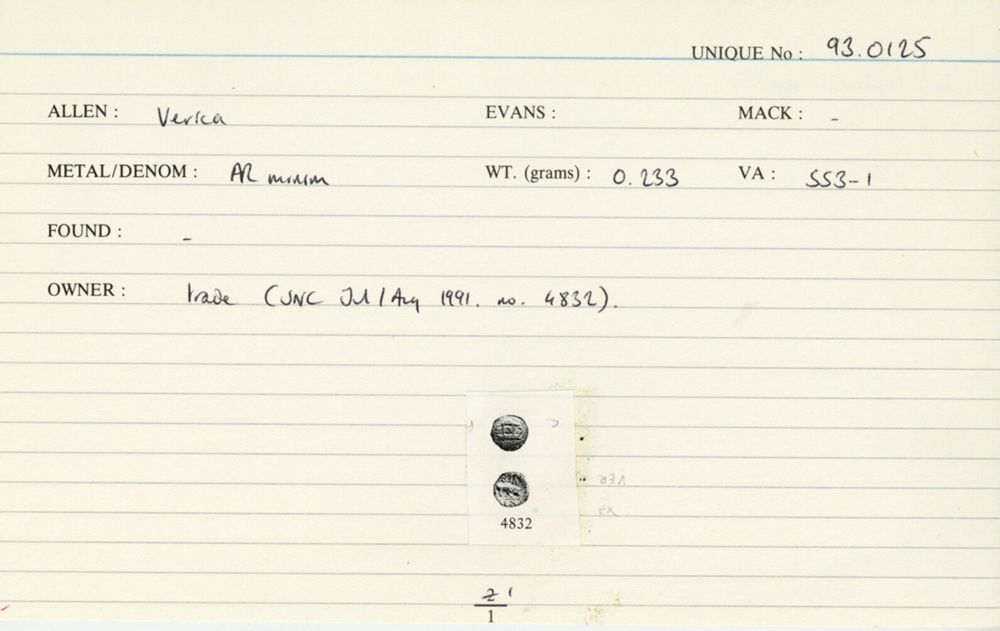 UNIQUE No : 93.0125
ALLEN : Verica EVANS : MACK : -
METAL/DENOM : AR minim WT. (grams) : 0.233 VA : 553-1
FOUND : -
OWNER : trade (SNC Jul/Aug 1991. no. 4832).
4832
2 1
1